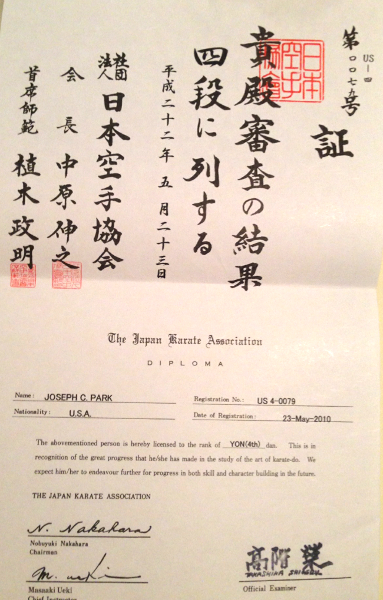 US－四
第〇〇七九号
証
貴殿審査の結果
四段に列する
平成二十二年 五月二十三日
社団法人 日本空手協会
会長 中原伸之
首席師範 植木政明
The Japan Karate Association
DIPLOMA
Name: JOSEPH C. PARK Registration No.: US 4-0079
Nationality: U.S.A. Date of Registration: 23-May-2010
The abovementioned person is hereby licensed to the rank of YON(4th) dan. This is in
recognition of the great progress that he/she has made in the study of the art of karate-do. We
expect him/her to endeavour further for progress in both skill and character building in the future.
THE JAPAN KARATE ASSOCIATION
N. Nakahara
Nobuyuki Nakahara
Chairman
M. Ueki
Masaaki Ueki
Chief Instructor
高階
TAKASHINA SHIGERU
Official Examiner